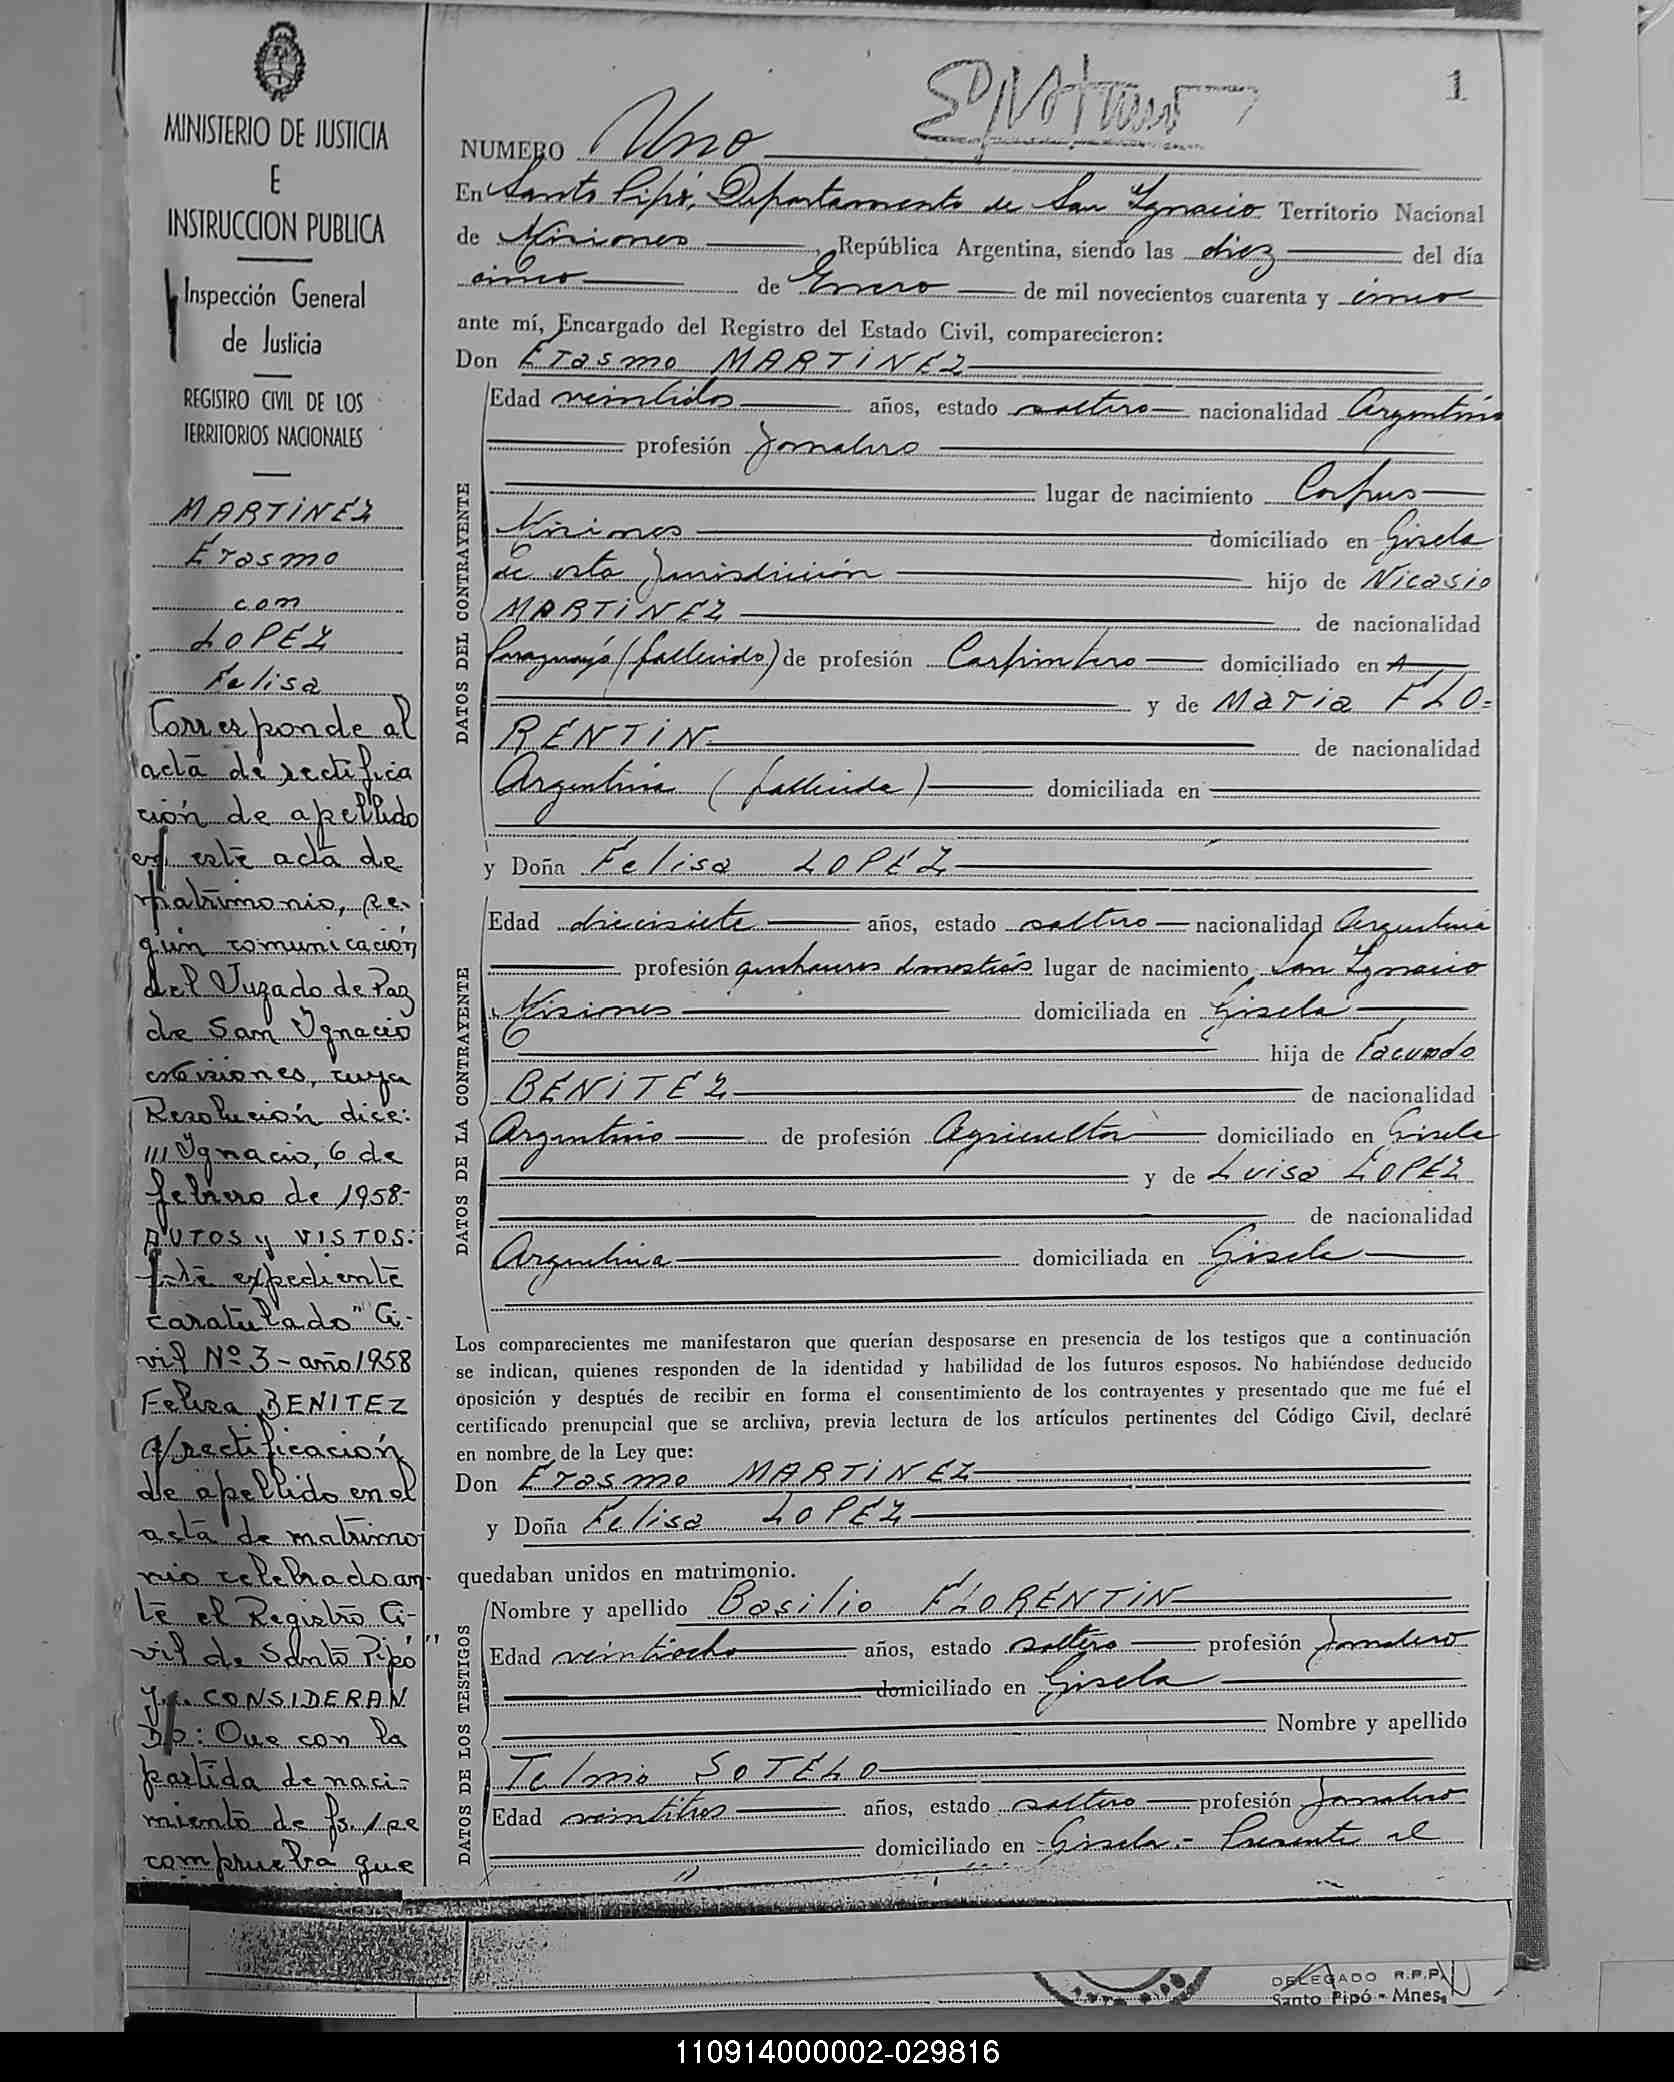 MINISTERIO DE JUSTICIA
E
INSTRUCCION PUBLICA
Inspección General
de Justicia
REGISTRO CIVIL DE LOS
TERRITORIOS NACIONALES
MARTINEZ
Erasmo
con
LOPEZ
Felisa
Corresponde al
acta de rectifica
ción de apellido
en este acta de
matrimonio, se-
gún comunicación
del Juzgado de Paz
de San Ignacio
Misiones, cuya
Resolución dice:
III Ignacio, 6 de
febrero de 1958.-
AUTOS y VISTOS:
Este expediente
caratulado "Ci-
vil Nº 3 - año 1958
Felisa BENITEZ
s/rectificación
de apellido en el
acta de matrimo
nio celebrado an-
te el Registro Ci-
vil de Santo Pipó"
y... CONSIDERAN
DO: Que con la
partida de naci-
miento de fs. 1 se
comprueba que
1
NUMERO Uno
En Santo Pipó, Departamento de San Ignacio Territorio Nacional
de Misiones, República Argentina, siendo las diez del día
cinco de Enero de mil novecientos cuarenta y cinco
ante mí, Encargado del Registro del Estado Civil, comparecieron:
Don Erasmo MARTINEZ
DATOS DEL CONTRAYENTE
Edad veintidos años, estado soltero nacionalidad Argentino
profesión Jornalero
lugar de nacimiento Corpus
Misiones domiciliado en Gisela
de esta Jurisdicción hijo de Nicasio
MARTINEZ de nacionalidad
Paraguayo (fallecido) de profesión Carpintero domiciliado en
y de Maria FLO=
RENTIN de nacionalidad
Argentina (fallecida) domiciliada en
y Doña Felisa LOPEZ
DATOS DE LA CONTRAYENTE
Edad diecisiete años, estado soltero nacionalidad Argentina
profesión quehaceres domesticos lugar de nacimiento San Ignacio
Misiones domiciliada en Gisela
hija de Facundo
BENITEZ de nacionalidad
Argentino de profesión Agricultor domiciliado en Gisela
y de Luisa LOPEZ
de nacionalidad
Argentina domiciliada en Gisela
Los comparecientes me manifestaron que querían desposarse en presencia de los testigos que a continuación
se indican, quienes responden de la identidad y habilidad de los futuros esposos. No habiéndose deducido
oposición y después de recibir en forma el consentimiento de los contrayentes y presentado que me fué el
certificado prenupcial que se archiva, previa lectura de los artículos pertinentes del Código Civil, declaré
en nombre de la Ley que:
Don Erasmo MARTINEZ
y Doña Felisa LOPEZ
quedaban unidos en matrimonio.
DATOS DE LOS TESTIGOS
Nombre y apellido Basilio FLORENTIN
Edad veintiocho años, estado soltero profesión Jornalero
domiciliado en Gisela
Nombre y apellido
Telmo SOTELO
Edad veintitres años, estado soltero profesión Jornalero
domiciliado en Gisela.- Presente el
DELEGADO R.P.P.
Santo Pipó - Mnes.
110914000002-029816